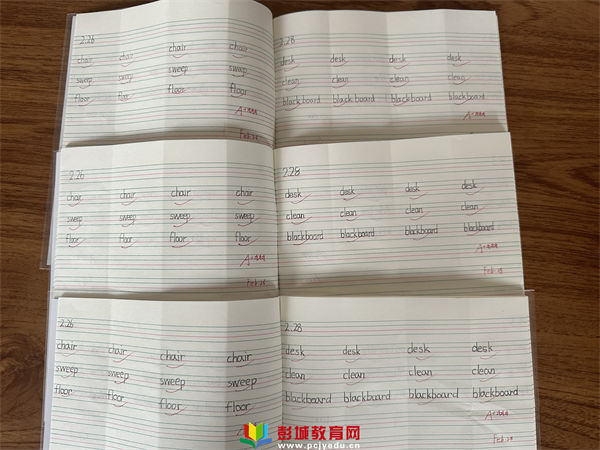 2.26
chair chair chair chair
sweep sweep sweep sweep
floor floor floor floor
2.28
desk desk desk desk
clean clean clean clean
blackboard blackboard blackboard blackboard
2.26
chair chair chair chair
sweep sweep sweep sweep
floor floor floor floor
2.28
desk desk desk desk
clean clean clean clean
blackboard blackboard blackboard blackboard
2.26
chair chair chair chair
sweep sweep sweep sweep
floor floor floor floor
2.28
desk desk desk desk
clean clean clean clean
blackboard blackboard blackboard blackboard
彭城教育网
www.pcjyedu.cn